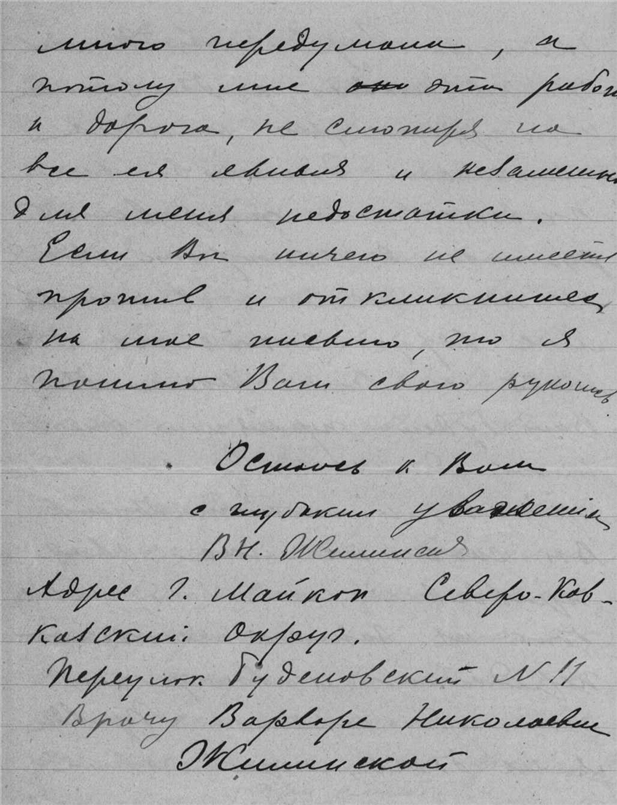 много передумала, и
потому мне эта работ
и дорога, не смотря на
все ея явныя и незаметны
для меня недостатки.
Если Вы ничего не имеете
против и откликнитесь
на мое письмо, то я
пошлю Вам свою рукопись
Остаюсь к Вам
с глубоким уважением
В.Н. Жилинская
Адрес г. Майкоп Северо-Кав-
казский округ.
Переулок Буденовский N 11
Врачу Варваре Николаевне
Жилинской